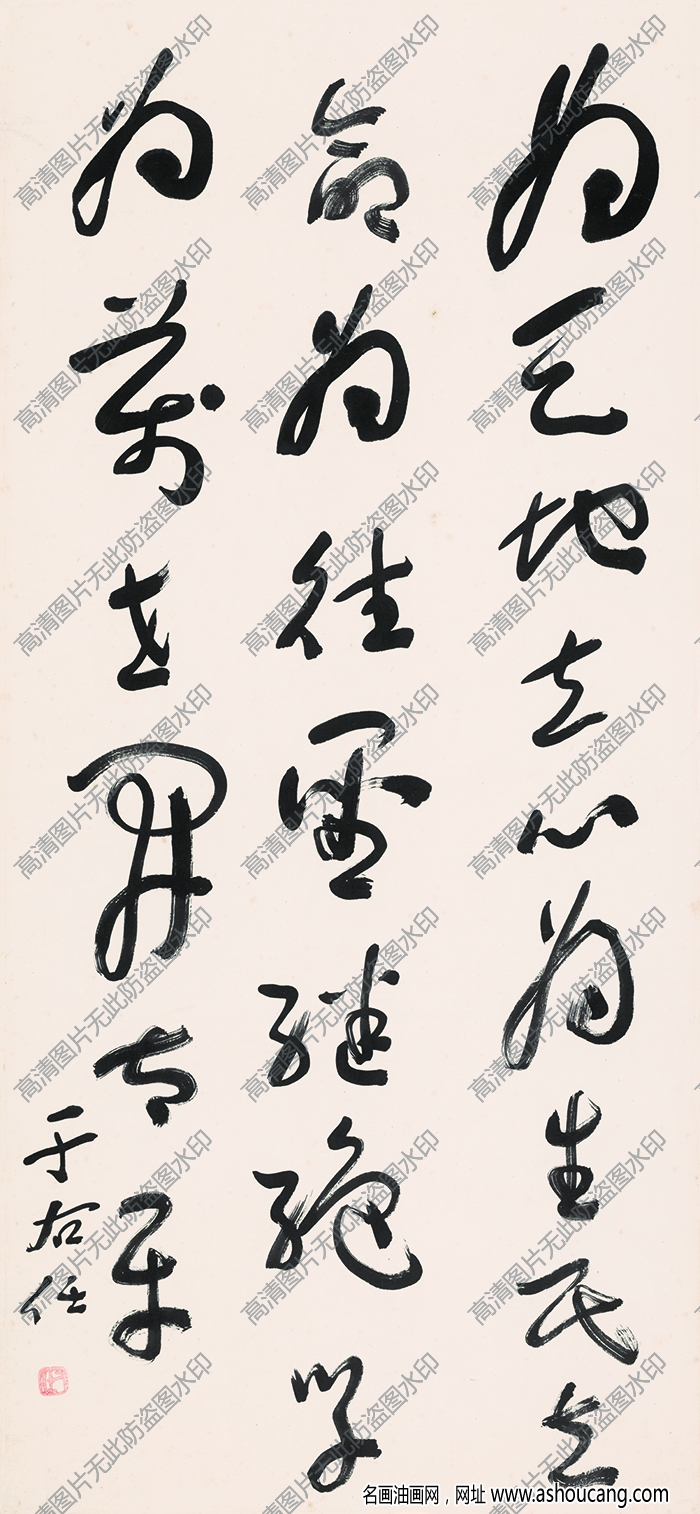 为天地立心为生民立
命为往圣继绝学
为万世开太平
于右任
名画油画网，网址 www.ashoucang.com
高清图片无此防盗图水印